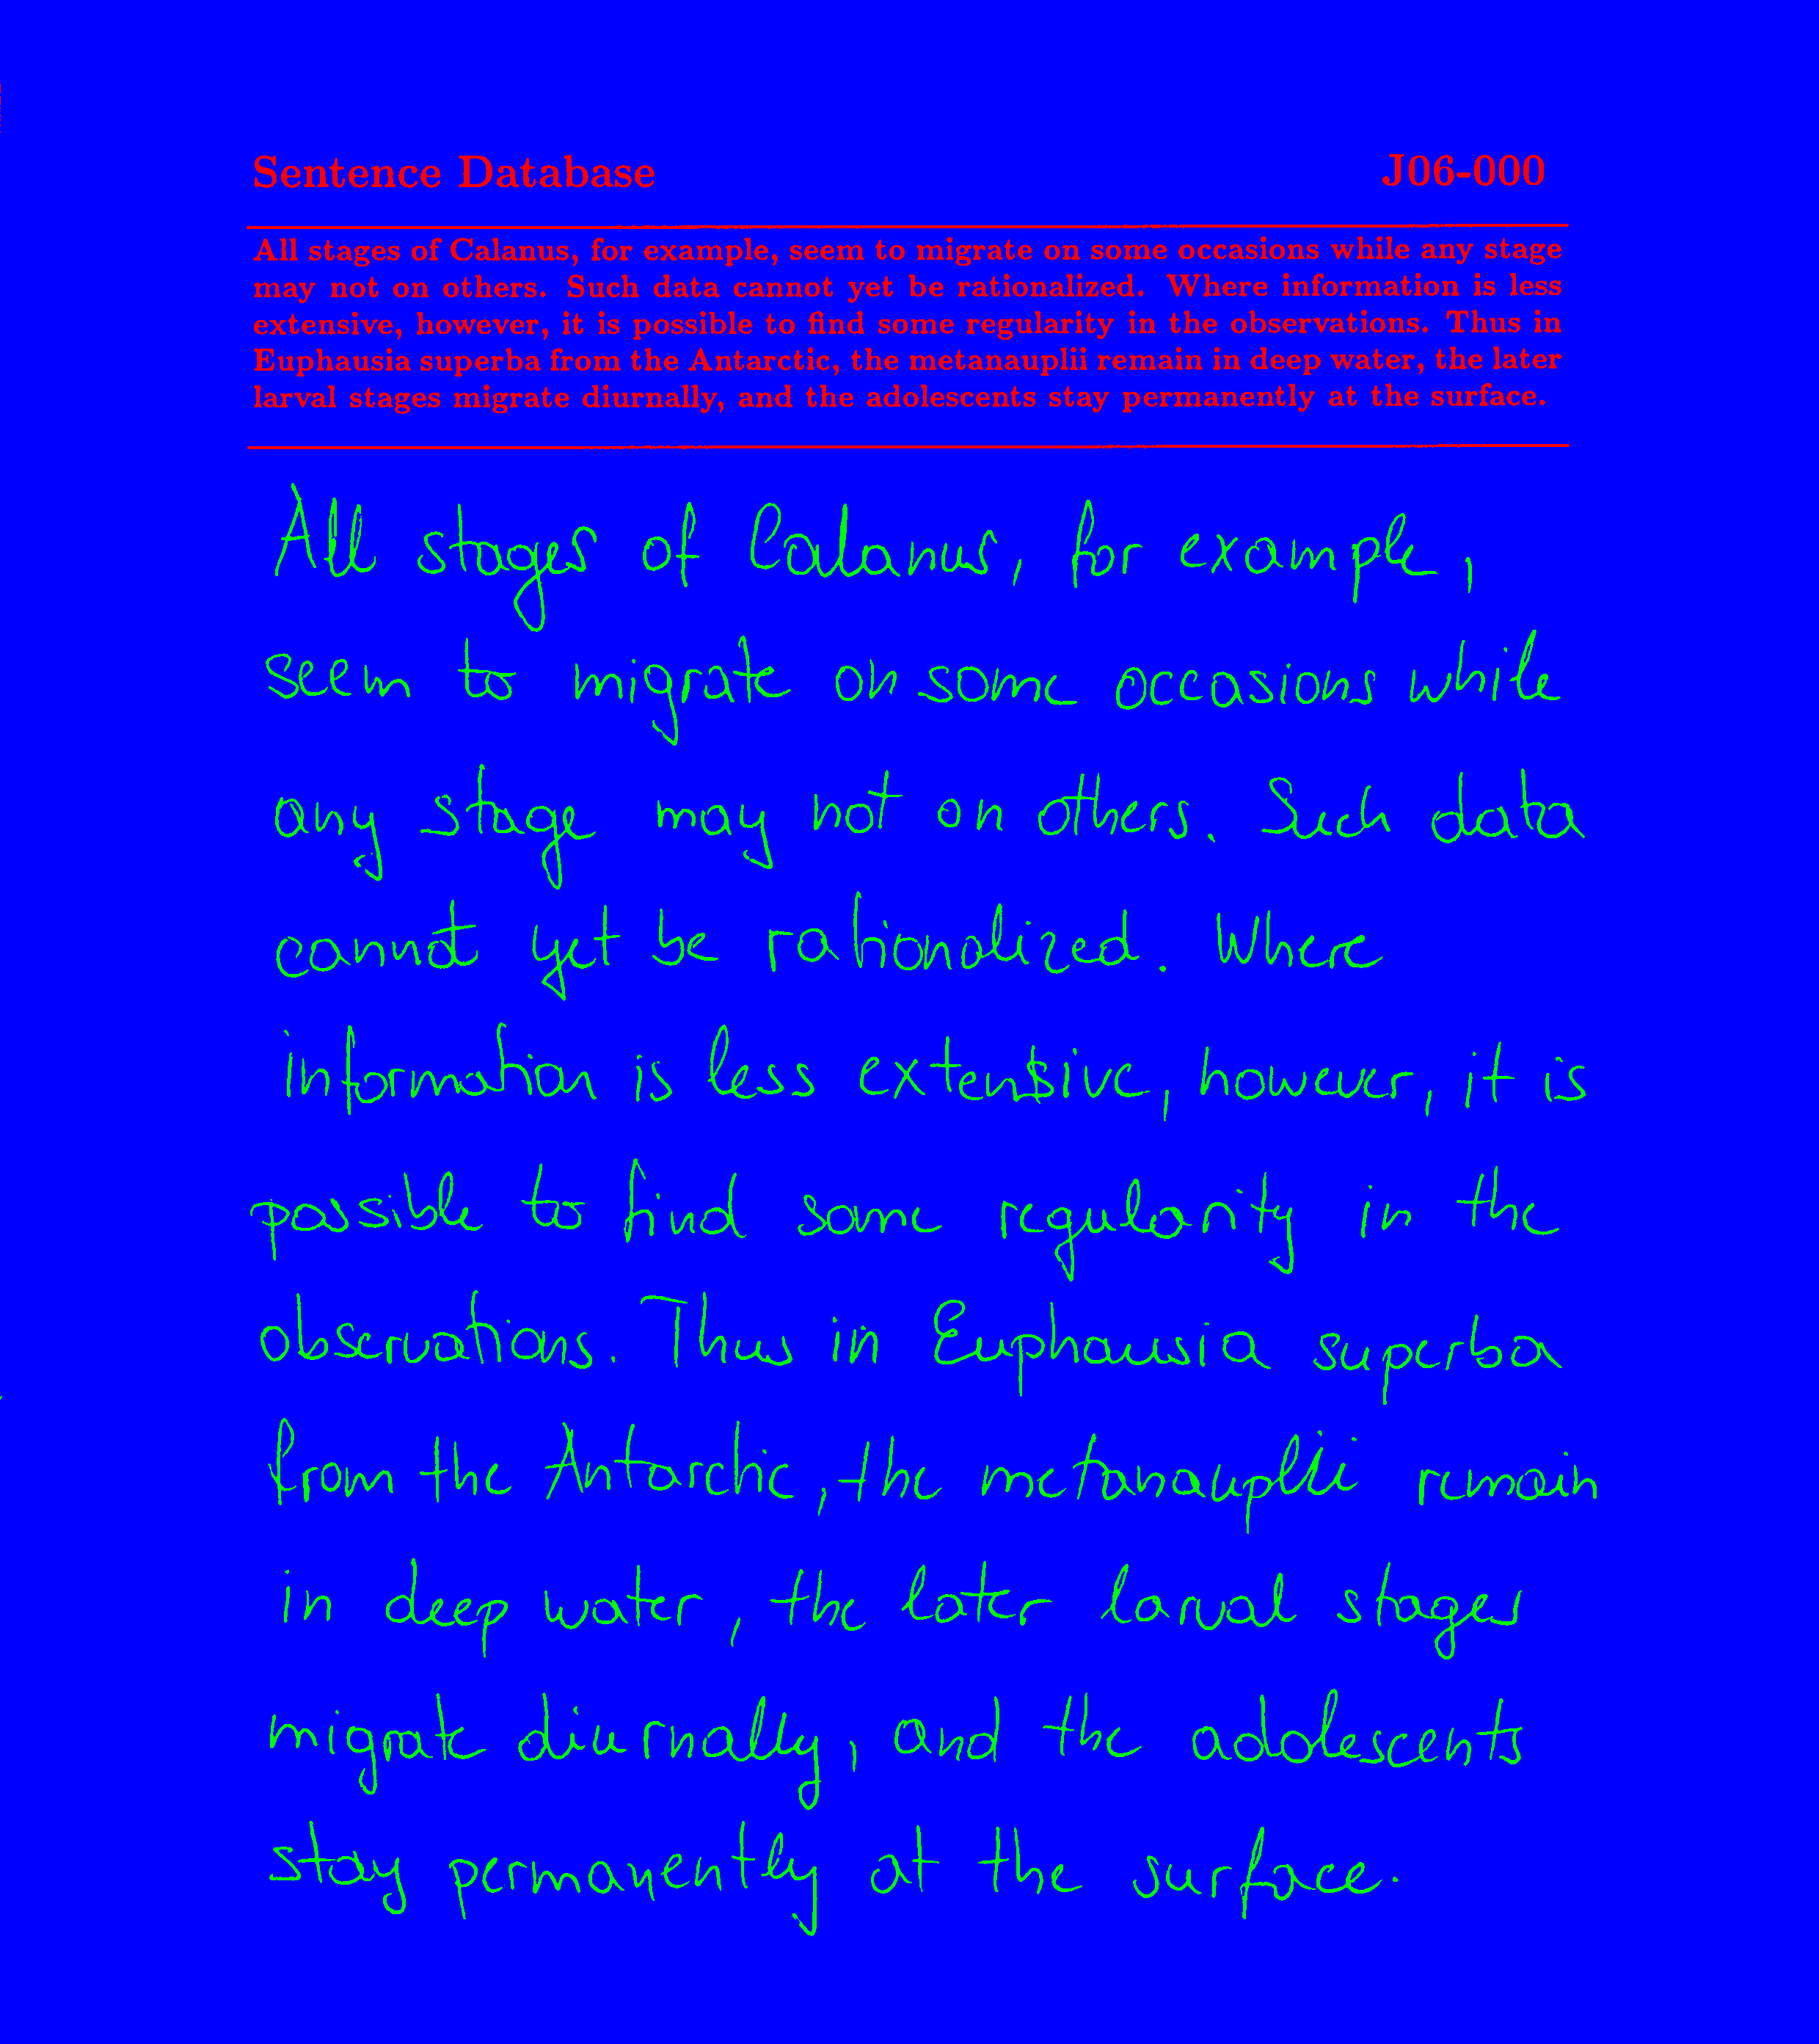 Sentence Database J06-000
All stages of Calanus, for example, seem to migrate on some occasions while any stage
may not on others. Such data cannot yet be rationalized. Where information is less
extensive, however, it is possible to find some regularity in the observations. Thus in
Euphausia superba from the Antarctic, the metanauplii remain in deep water, the later
larval stages migrate diurnally, and the adolescents stay permanently at the surface.
All stages of Calanus, for example,
seem to migrate on some occasions while
any stage may not on others. Such data
cannot yet be rationalized. Where
information is less extensive, however, it is
possible to find some regularity in the
observations. Thus in Euphausia superba
from the Antarctic, the metanauplii remain
in deep water, the later larval stages
migrate diurnally, and the adolescents
stay permanently at the surface.